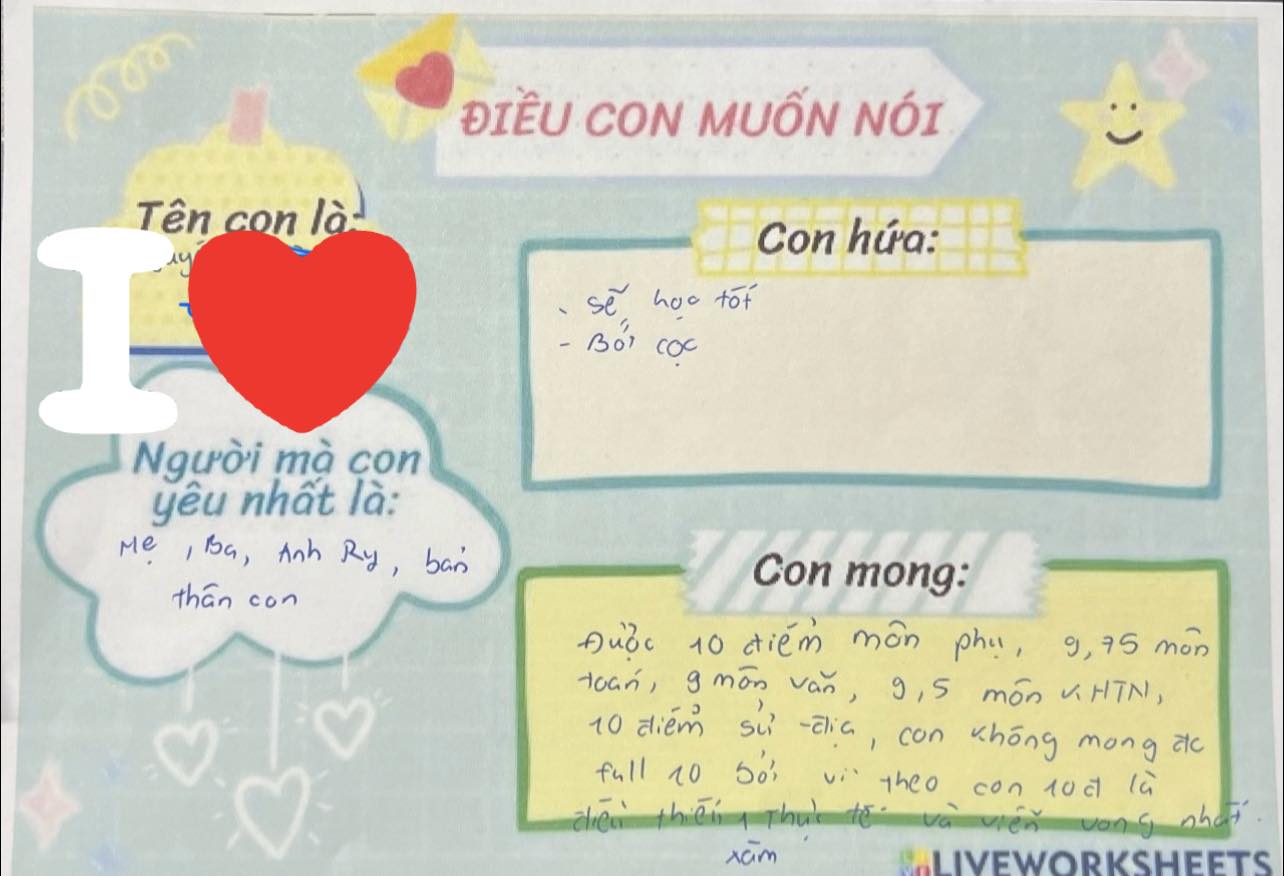 ĐIỀU CON MUỐN NÓI
Tên con là:
I
Người mà con
yêu nhất là:
Mẹ, Ba, Anh Ry, bản
thân con
Con hứa:
- sẽ học tốt
- Bớt cọc
Con mong:
Được 10 điểm môn phụ, 9,75 môn
toán, 9 môn văn, 9,5 môn KHTN,
10 điểm sử - địa, con không mong đc
full 10 bởi vì theo con 10đ là
điều thiếu thực tế và viển vong nhất
xàm
LIVEWORKSHEETS